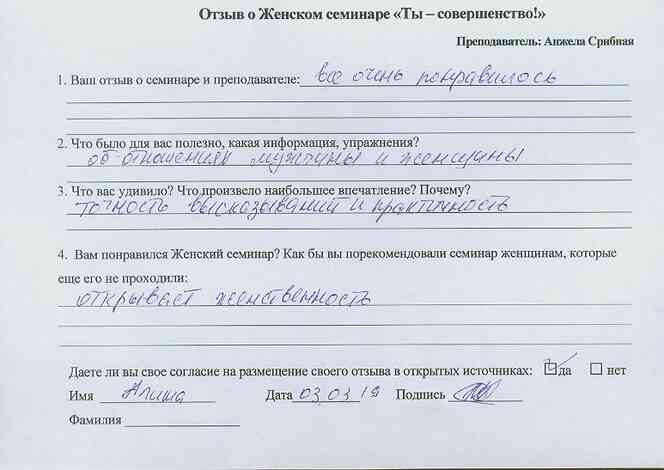 Отзыв о Женском семинаре «Ты – совершенство!»
Преподаватель: Анжела Срибная
1. Ваш отзыв о семинаре и преподавателе: все очень понравилось
2. Что было для вас полезно, какая информация, упражнения?
об отношениях мужчины и женщины
3. Что вас удивило? Что произвело наибольшее впечатление? Почему?
точность высказываний и практичность
4. Вам понравился Женский семинар? Как бы вы порекомендовали семинар женщинам, которые
еще его не проходили:
открывает женственность
Даете ли вы свое согласие на размещение своего отзыва в открытых источниках: да нет
Имя Алина Дата 03 03 19 Подпись
Фамилия